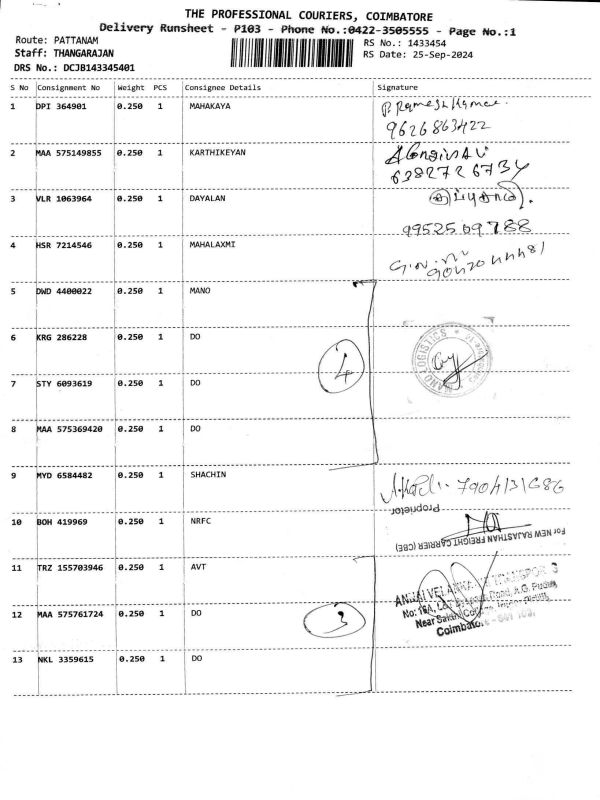 THE PROFESSIONAL COURIERS, COIMBATORE
Delivery Runsheet - P103 - Phone No.:0422-3505555 - Page No.:1
Route: PATTANAM
RS No.: 1433454
Staff: THANGARAJAN
RS Date: 25-Sep-2024
DRS No.: DCJB143345401
S No Consignment No Weight PCS Consignee Details Signature
1 DPI 364901 0.250 1 MAHAKAYA P. Rameshkumar.
9626863422
2 MAA 575149855 0.250 1 KARTHIKEYAN
6382726734
3 VLR 1063964 0.250 1 DAYALAN
9952509788
4 HSR 7214546 0.250 1 MAHALAXMI
5 DWD 4400022 0.250 1 MANO
6 KRG 286228 0.250 1 DO 4 MANO LOGISTICS
7 STY 6093619 0.250 1 DO
8 MAA 575369420 0.250 1 DO
9 MYD 6584482 0.250 1 SHACHIN 7904131686
Proprietor
10 BOH 419969 0.250 1 NRFC
For NEW RAJASTHAN FREIGHT CARRIER (CBE)
11 TRZ 155703946 0.250 1 AVT
12 MAA 575761724 0.250 1 DO 3
Coimbatore
13 NKL 3359615 0.250 1 DO